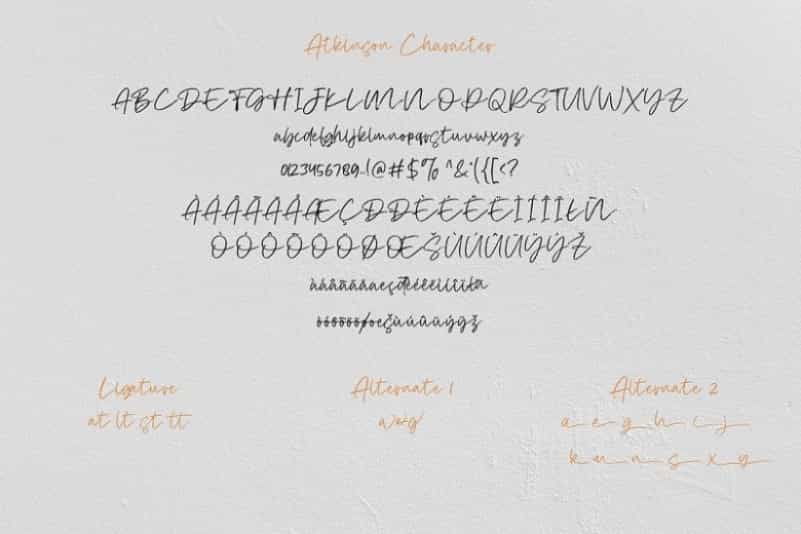 Atkinson Character
ABCDEFGHIJKLMNOPQRSTUVWXYZ
abcdefghijklmnopqrstuvwxyz
0123456789.!@#$%^&*(){}[]<?
ÀÁÂÃÄÅÆÇÐÐÈÉÊËÌÍÎÏŁÑ
ÒÓÔÕÖØŒŠÙÚÛÜÝŸŽ
Ligature
Alternate 1
Alternate 2
at lt st tt
a e g
a e g h i j
k m n s x y